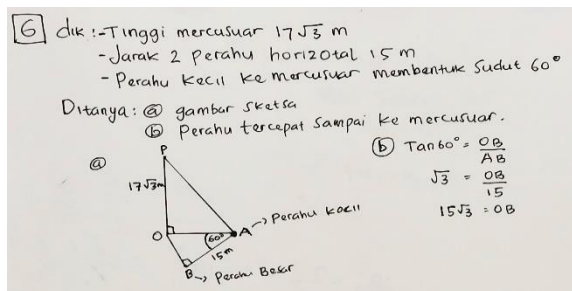 6 dik :-Tinggi mercusuar 17√3 m
-Jarak 2 perahu horizotal 15 m
- Perahu kecil ke mercusuar membentuk sudut 60°
Ditanya: ⓐ gambar sketsa
ⓑ Perahu tercepat sampai ke mercusuar.
ⓐ
P
17√3m
O
60°
A
→ Perahu kecil
15m
B → Perahu Besar
ⓑ Tan 60° = OB/AB
√3 = OB/15
15√3 = OB